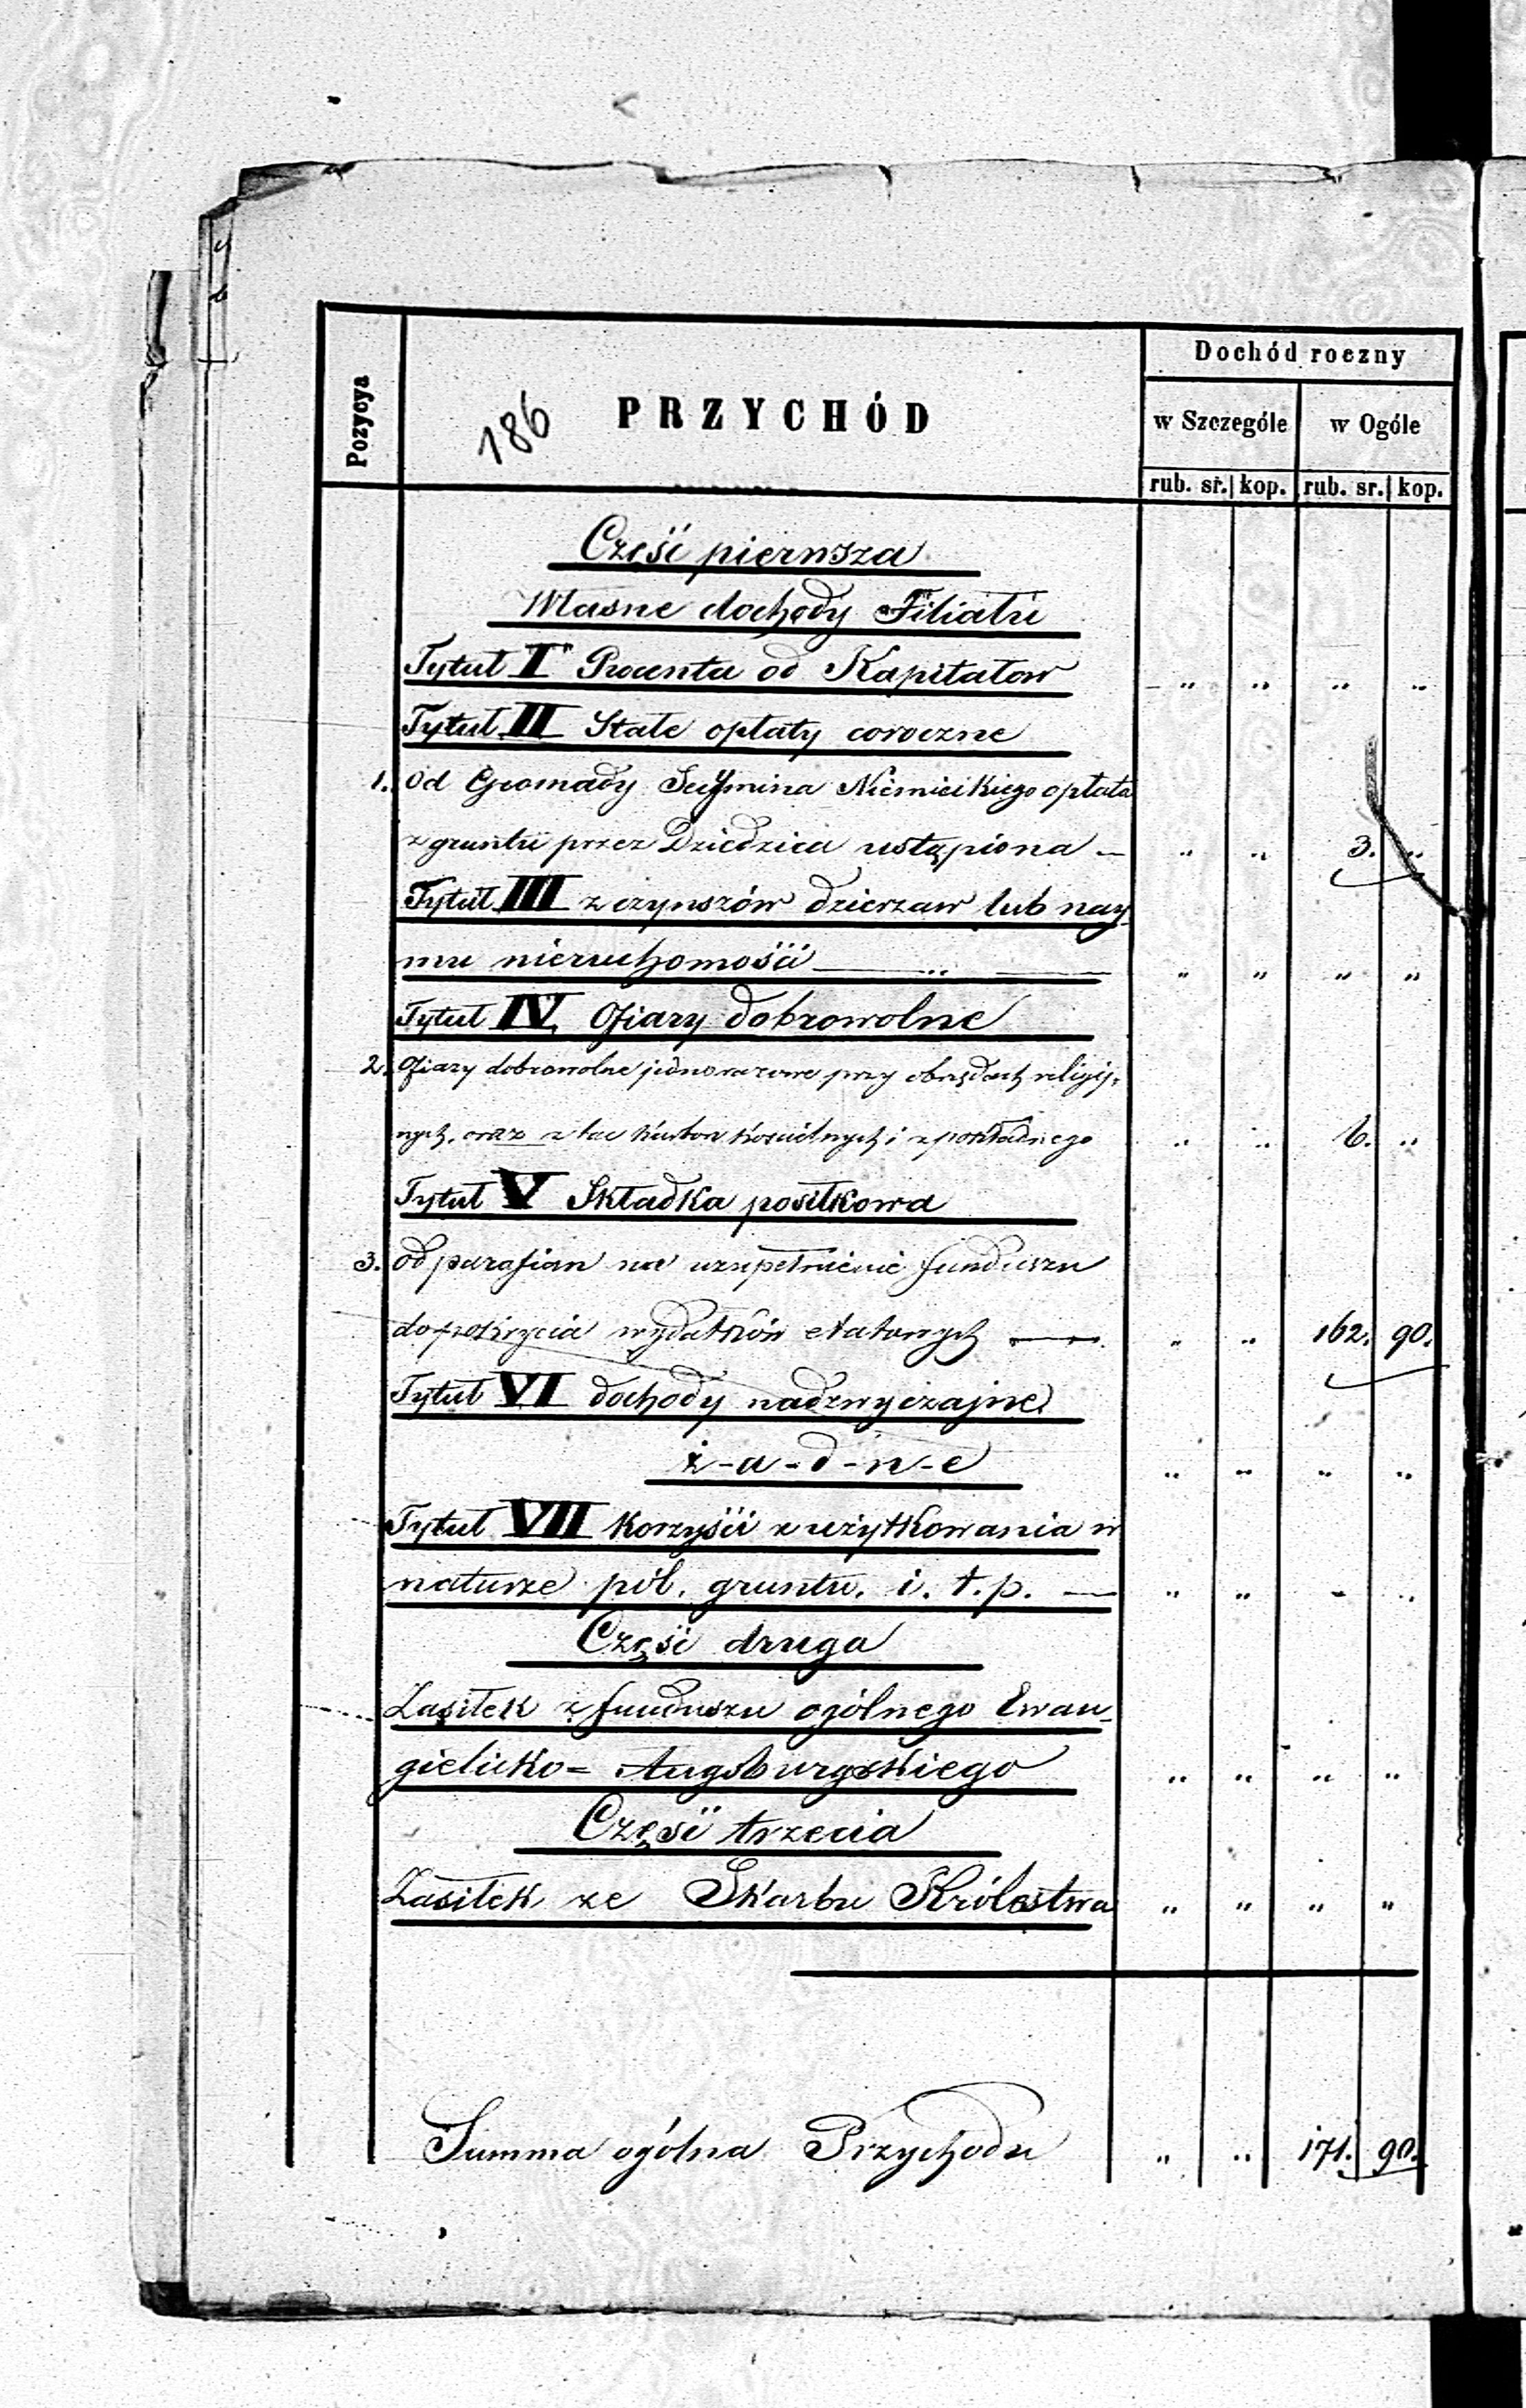 Pozycya
186
PRZYCHÓD
Dochód roczny
w Szczególe
w Ogóle
rub. sr. kop. rub. sr. kop.
Część pierwsza
Własne dochody Filiału
Tytuł I Procenta od Kapitałow " " " "
Tytuł II Stałe opłaty coroczne
1. Od Gromady Seymina Niemieckiego opłata
z gruntu przez Dziedzica ustąpiona — " " 3. "
Tytuł III z czynszów dzierzaw lub nay-
mu nieruchomości " " " "
Tytuł IV. Ofiary dobrowolne
2. Ofiary dobrowolne jednorazowe przy obrzędach religij-
nych, oraz z kościelnych i z pokładnego " " 6. "
Tytuł V Składka posiłkowa
3. od parafian na uzupełnienie funduszu
do pokrycia wydatków etatowych — " " 162. 90.
Tytuł VI dochody nadzwyczajne
ż-a-d-n-e " " " "
Tytuł VII Korzyści z użytkowania w
naturze pól, gruntu, i. t. p. — " " - "
Część druga
Zasiłek z funduszu ogólnego Ewan-
gielicko=Augsburgskiego " " " "
Część trzecia
Zasiłek ze Skarbu Królestwa " " " "
Summa ogólna Przychodu " " 171. 90.